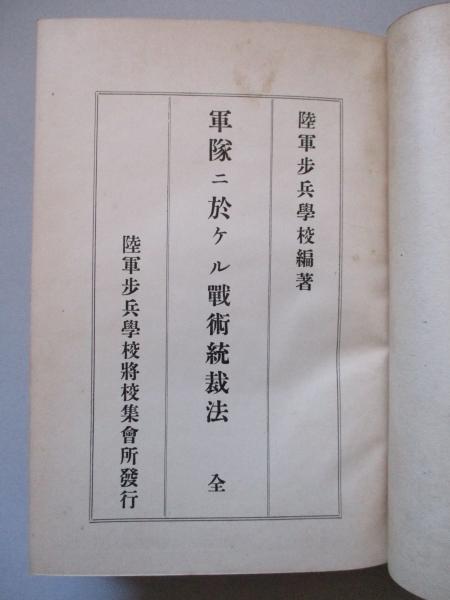 陸軍步兵學校編著
軍隊ニ於ケル戰術統裁法 全
陸軍步兵學校將校集會所發行